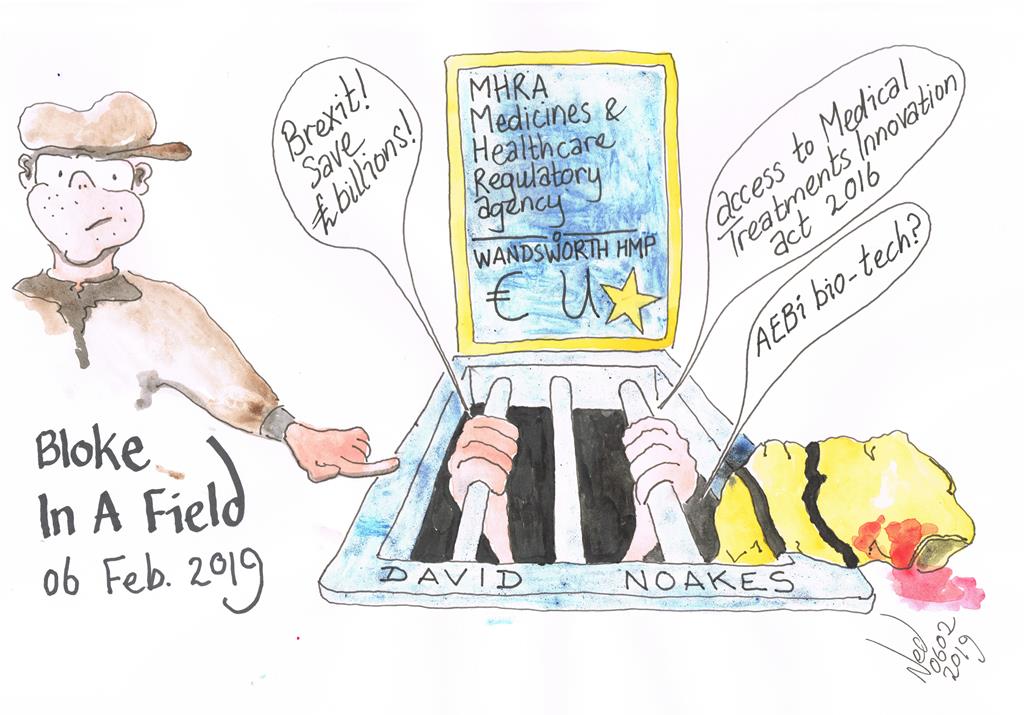 Brexit!
Save
£billions!
MHRA
Medicines &
Healthcare
Regulatory
agency
WANDSWORTH HMP
€ U
access to Medical
Treatments Innovation
act 2016
AEBi bio-tech?
Bloke
In A Field
06 Feb. 2019
DAVID NOAKES
Ned
0602
2019